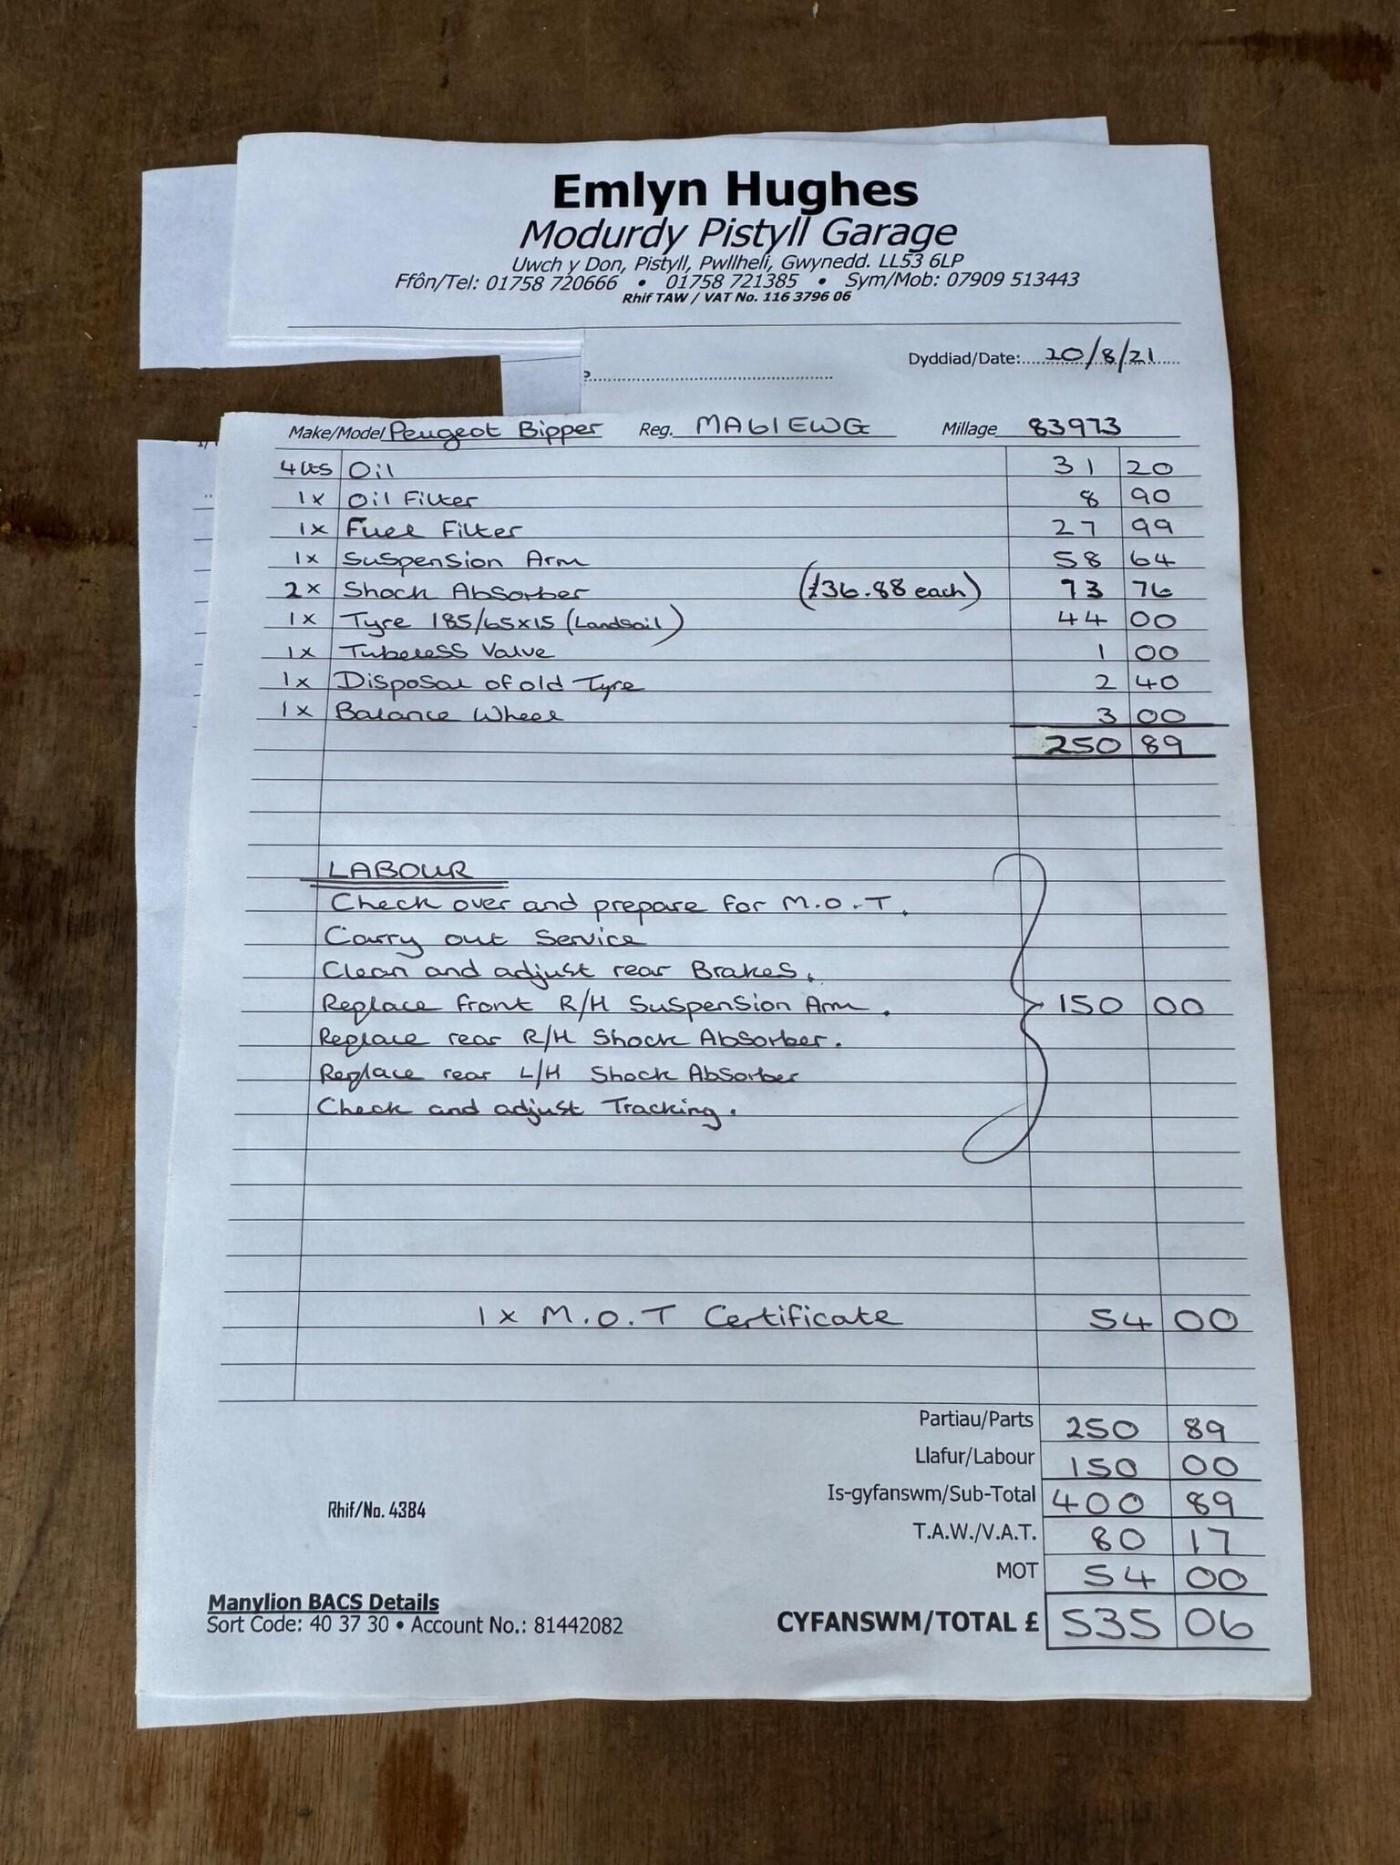 Emlyn Hughes
Modurdy Pistyll Garage
Uwch y Don, Pistyll, Pwllheli, Gwynedd. LL53 6LP
Ffôn/Tel: 01758 720666 • 01758 721385 • Sym/Mob: 07909 513443
Rhif TAW / VAT No. 116 3796 06
Dyddiad/Date: 20/8/21
Make/Model Peugeot Bipper Reg. MA61EWG Millage 83973
4 Lts Oil 31 20
1x Oil Filter 8 90
1x Fuel Filter 27 99
1x Suspension Arm 58 64
2x Shock Absorber (£36.88 each) 73 76
1x Tyre 185/65x15 (Landsail) 44 00
1x Tubeless Valve 1 00
1x Disposal of old Tyre 2 40
1x Balance Wheel 3 00
250 89
LABOUR
Check over and prepare for M.O.T.
Carry out Service
Clean and adjust rear Brakes.
Replace front R/H Suspension Arm. 150 00
Replace rear R/H Shock Absorber.
Replace rear L/H Shock Absorber
Check and adjust Tracking.
1 x M.O.T Certificate 54 00
Partiau/Parts 250 89
Llafur/Labour 150 00
Is-gyfanswm/Sub-Total 400 89
Rhif/No. 4384
T.A.W./V.A.T. 80 17
MOT 54 00
Manylion BACS Details
Sort Code: 40 37 30 • Account No.: 81442082
CYFANSWM/TOTAL £ 535 06